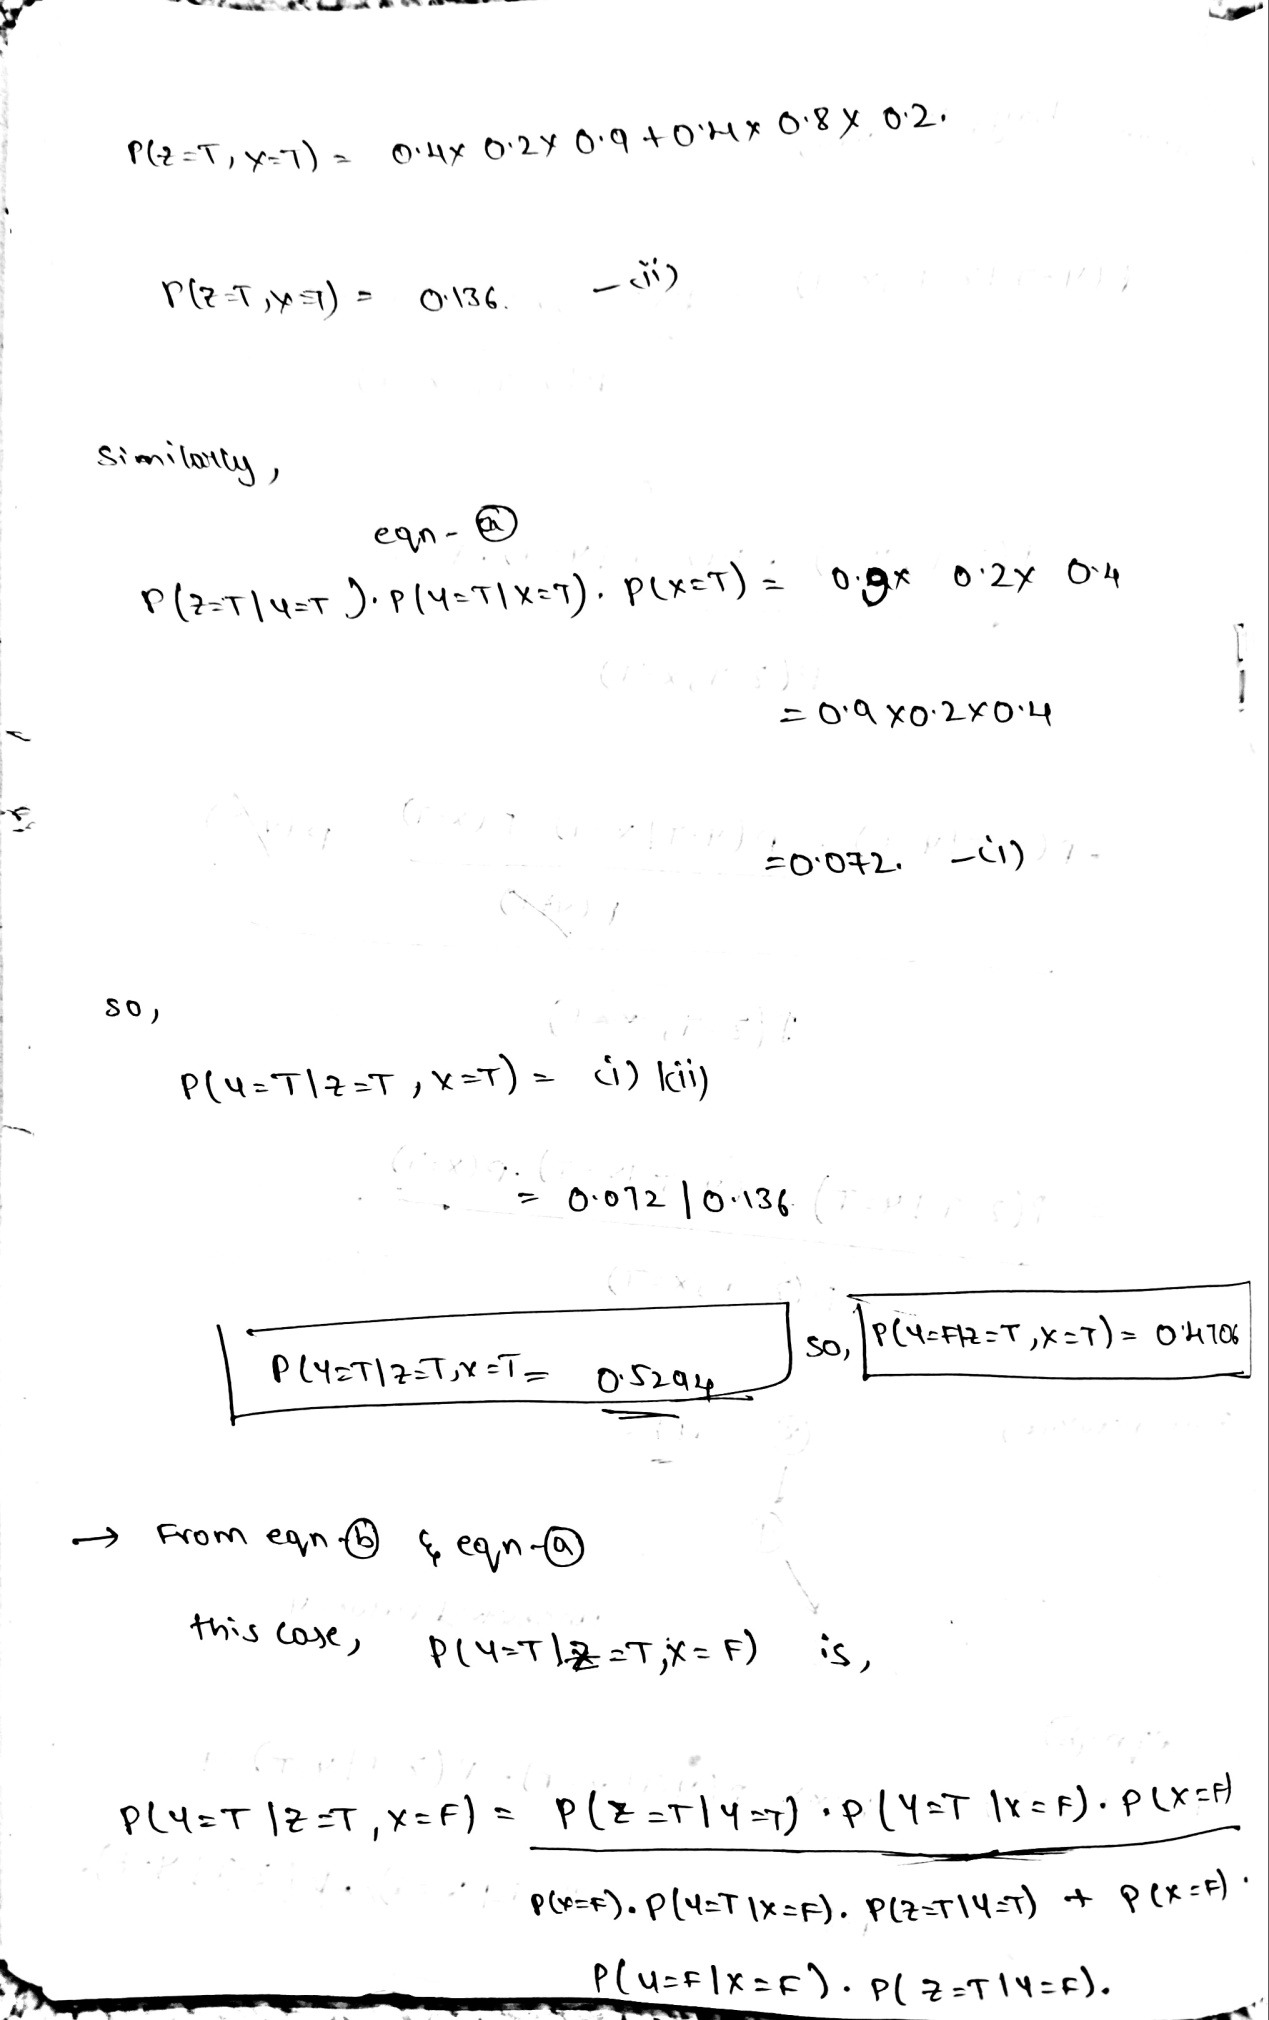 P(Z=T, X=T) = 0.4x 0.2x 0.9 + 0.4x 0.8 x 0.2.
P(Z=T, X=T) = 0.136. -(ii)
Similarly,
eqn - (a)
P(Z=T|Y=T). P(Y=T|X=T). P(X=T) = 0.9x 0.2x 0.4
= 0.9 x0.2x0.4
=0.072. -(i)
so,
P(Y=T|Z=T, X=T) = (i) /(ii)
= 0.072 / 0.136
P(Y=T|Z=T,X=T = 0.5294 so, P(Y=F|Z=T, X=T) = 0.4706
→ From eqn-(b) & eqn-(a)
this case, P(Y=T|Z=T, X=F) is,
P(Y=T|Z=T, X=F) = P(Z=T|Y=T) . P(Y=T|X=F). P(X=F)
P(X=F). P(Y=T|X=F). P(Z=T|Y=T) + P(X=F).
P(Y=F|X=F). P(Z=T|Y=F).